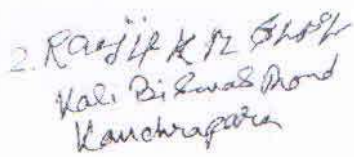 2. Ranjit Kr
Kali Biswas Road
Kanchrapara